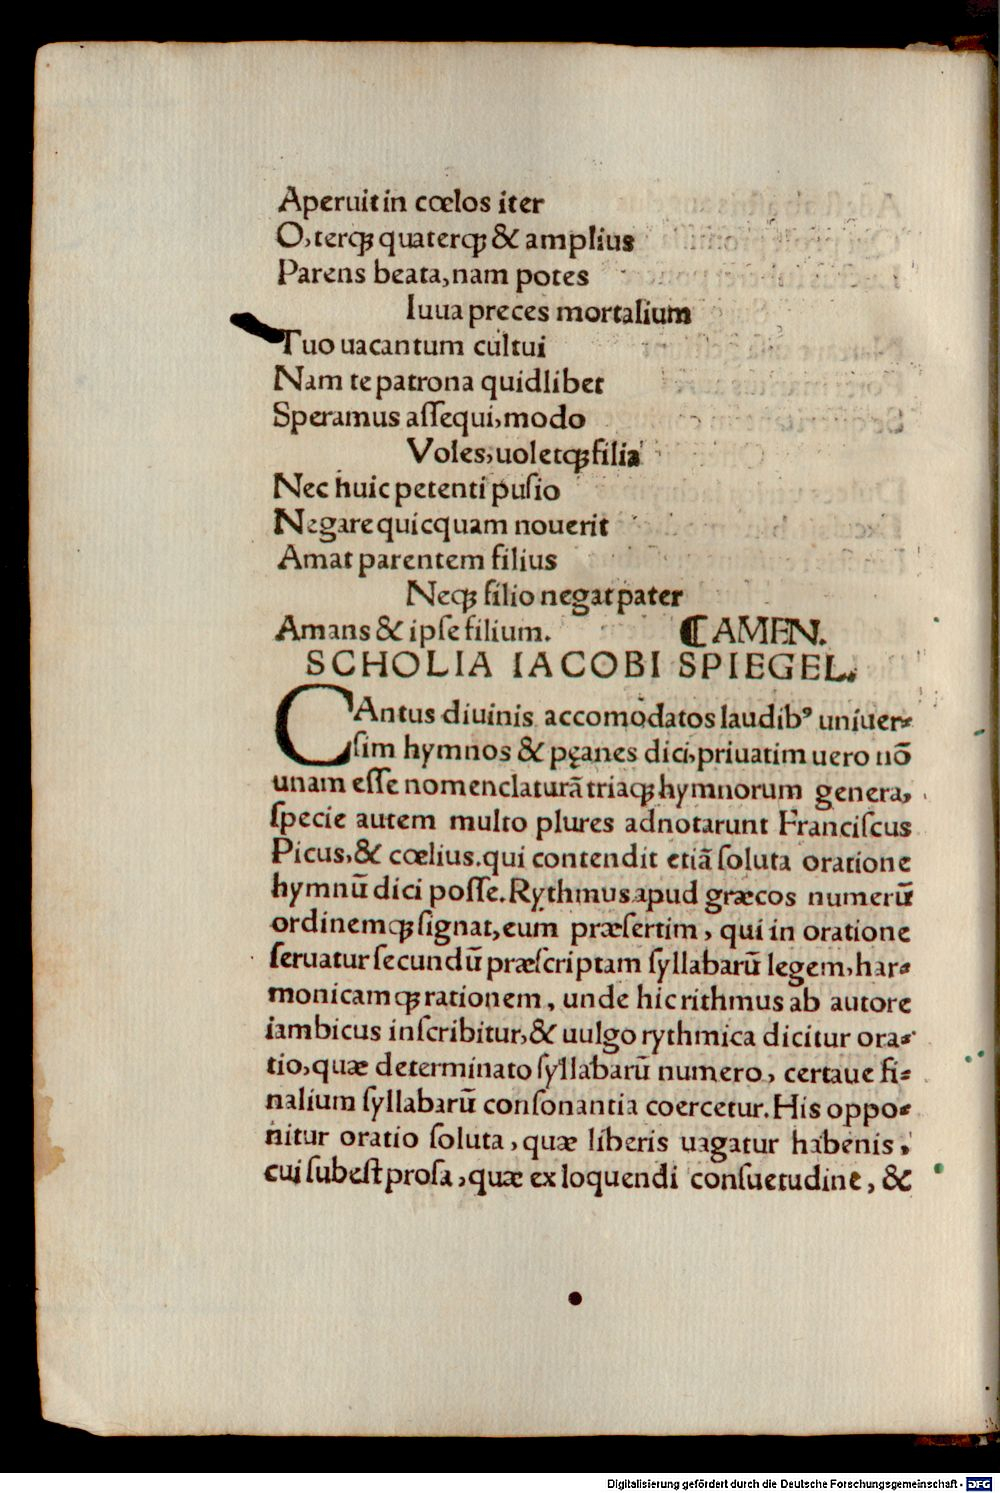 Aperuit in cœlos iter
O, terqꝫ quaterqꝫ & amplius
Parens beata, nam potes
Iuua preces mortalium
Tuo uacantum cultui
Nam te patrona quidlibet
Speramus aſſequi, modo
Voles, uoletqꝫ filia
Nec huic petenti puſio
Negare quicquam nouerit
Amat parentem filius
Neqꝫ filio negat pater
Amans & ipſe filium. ⸿ AMEN.
SCHOLIA IACOBI SPIEGEL.
CAntus diuinis accomodatos laudibꝰ uniuer⸗
ſim hymnos & pęanes dici, priuatim uero nō
unam eſſe nomenclaturā triaqꝫ hymnorum genera,
ſpecie autem multo plures adnotarunt Franciſcus
Picus, & cœlius. qui contendit etiā ſoluta oratione
hymnū dici poſſe. Rythmus apud græcos numerū
ordinemqꝫ ſignat, eum præſertim, qui in oratione
ſeruatur ſecundū præſcriptam ſyllabarū legem, har⸗
monicamqꝫ rationem, unde hic rithmus ab autore
iambicus inſcribitur, & uulgo rythmica dicitur ora⸗
tio, quæ determinato ſyllabarū numero, certaue fi⸗
nalium ſyllabarū conſonantia coercetur. His oppo⸗
nitur oratio ſoluta, quæ liberis uagatur habenis,
cui ſubeſt proſa, quæ ex loquendi conſuetudine, &
Digitalisierung gefördert durch die Deutsche Forschungsgemeinschaft - DFG